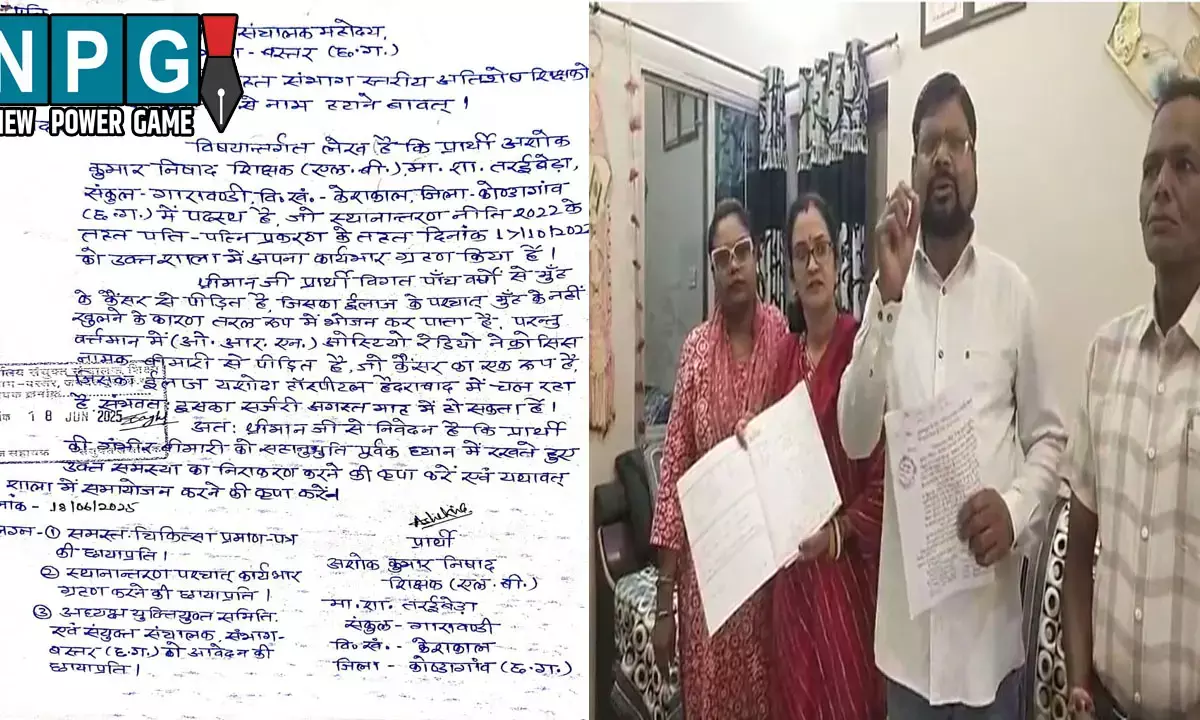 प्रति
संचालक महोदय,
- बस्तर (छ.ग.)
NPG
NEW POWER GAME
संभाग स्तरीय अतिशेष शिक्षको
से नाम हटाने बावत् !
विषयान्तर्गत लेख है कि प्रार्थी अशोक
कुमार निषाद शिक्षक (एल.बी.), मा. शा. तरईबेड़ा,
संकुल - गारावण्डी, वि.खं. - केशकाल, जिला - कोण्डागांव
(छ.ग.) में पदस्थ है, जो स्थानान्तरण नीति 2022 के
तहत पति-पत्नि प्रकरण के तहत दिनांक 17/10/2022
को उक्त शाला में अपना कार्यभार ग्रहण किया है।
श्रीमान जी प्रार्थी विगत पाँच वर्षो से मुँह
के कैंसर से पीड़ित है, जिसका ईलाज के पश्चात् मुँह के नहीं
खुलने के कारण तरल रूप में भोजन कर पाता है, परन्तु
वर्त्तमान में (ओ. आर. एन.) ओस्टियो रेडियो नेक्रोसिस
नामक बीमारी से पीड़ित है, जो कैंसर का एक रूप है,
जिसका ईलाज यशोदा हॉस्पीटल हैदराबाद में चल रहा
है संभवतः इसका सर्जरी अगस्त माह में हो सकता है।
18 JUN 2025
अतः श्रीमान जी से निवेदन है कि प्रार्थी
की गंभीर बीमारी को सहानुभुति पूर्वक ध्यान में रखते हुए
उक्त समस्या का निराकरण करने की कृपा करें एवं यथावत्
शाला में समायोजन करने की कृपा करें।
- 18/06/2025
① समस्त चिकित्सा प्रमाण-पत्र
की छायाप्रति।
② स्थानान्तरण पश्चात् कार्यभार
ग्रहण करने की छायाप्रति।
③ अध्यक्ष युक्तियुक्त समिति
एवं संयुक्त संचालक, संभाग-
बस्तर (छ.ग.) को आवेदन की
छायाप्रति।
प्रार्थी
अशोक कुमार निषाद
शिक्षक (एल.बी.)
मा. शा. तरईबेड़ा
संकुल - गारावण्डी
वि.खं. - केशकाल
जिला - कोण्डागांव (छ.ग.)